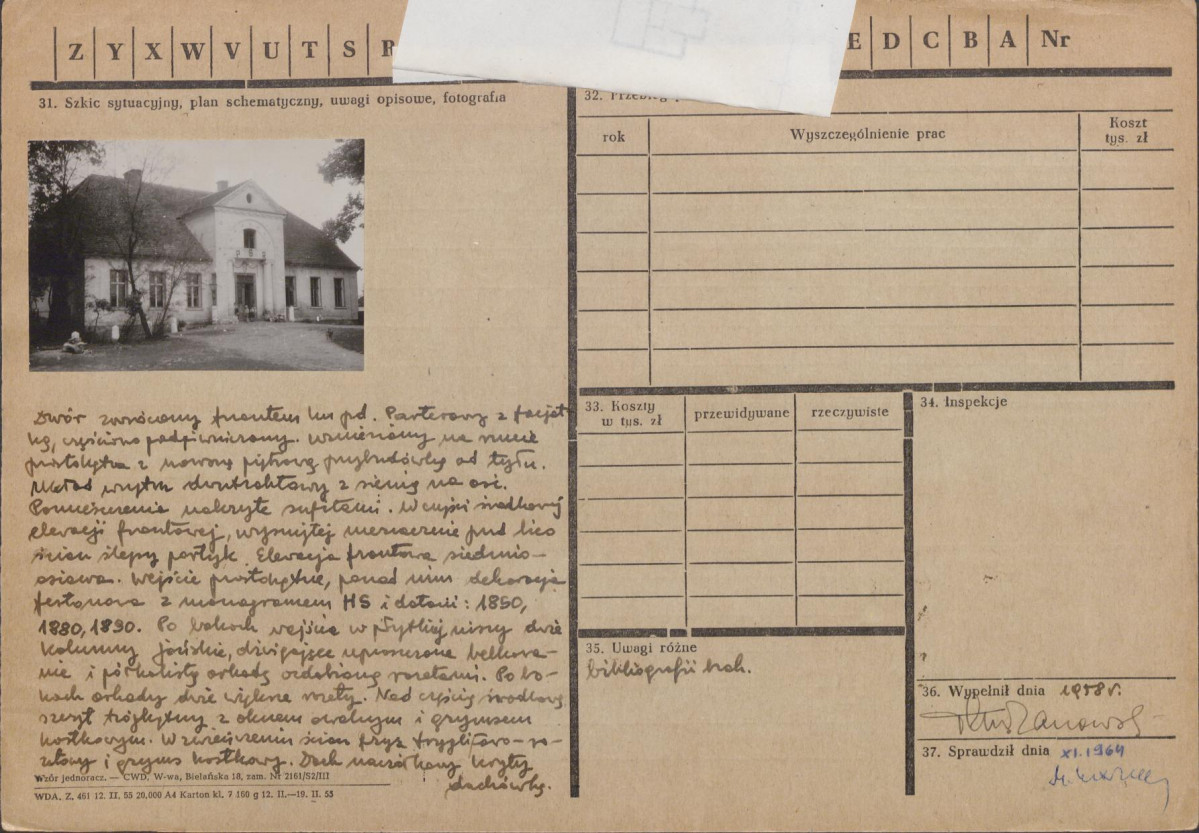 Z Y X W V U T S R
E D C B A Nr
31. Szkic sytuacyjny, plan schematyczny, uwagi opisowe, fotografia
Dwór zwrócony frontem ku pd. Parterowy z facjat-
ką, częściowo podpiwniczony. Wzniesiony na rzucie
prostokąta z nowszą piętrową przybudówką od tyłu.
Układ wnętrz dwutraktowy z sienią na osi.
Pomieszczenia nakryte sufitami. W części środkowej
elewacji frontowej, wysuniętej nieznacznie przed lico
ścian ślepy portyk. Elewacja frontowa siedmio-
osiowa. Wejście prostokątne, ponad nim dekoracja
festonowa z monogramem HS i datami: 1850,
1880, 1890. Po bokach wejścia w płytkiej niszy dwie
kolumny jońskie, dźwigające uproszczone belkowa-
nie i półkolistą arkadę ozdobioną rozetami. Po bo-
kach arkady dwie większe rozety. Nad częścią środkową
szczyt trójkątny z oknem owalnym i gzymsem
kostkowym. W zwieńczeniu ścian fryz tryglifowo-ro-
zetowy i gzyms kostkowy. Dach naczółkowy kryty
dachówką.
Wzór jednorącz. — CWD, W-wa, Bielańska 18, zam. Nr 2161/52/III
WDA. Z. 461 12. II. 55 20.000 A4 Karton kl. 7 160 g 12. II.—19. II. 55
32. Przebieg
rok
Wyszczególnienie prac
Koszt
tys. zł
33. Koszty
w tys. zł
przewidywane
rzeczywiste
34. Inspekcje
35. Uwagi różne
bibliografii brak.
36. Wypełnił dnia 1958 r.
37. Sprawdził dnia XI. 1964